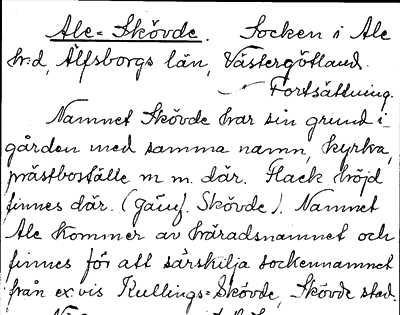 Ale-Skövde. Socken i Ale
hrd, Älfsborgs län, Västergötland.
Fortsättning.
Namnet Skövde har sin grund i
gården med samma namn, kyrka,
prästboställe m m. där. Flack höjd
finnes där. (Jämf. Skövde). Namnet
Ale kommer av häradsnamnet och
finnes för att särskilja sockennamnet
från ex vis Kullings-Skövde, Skövde stad.